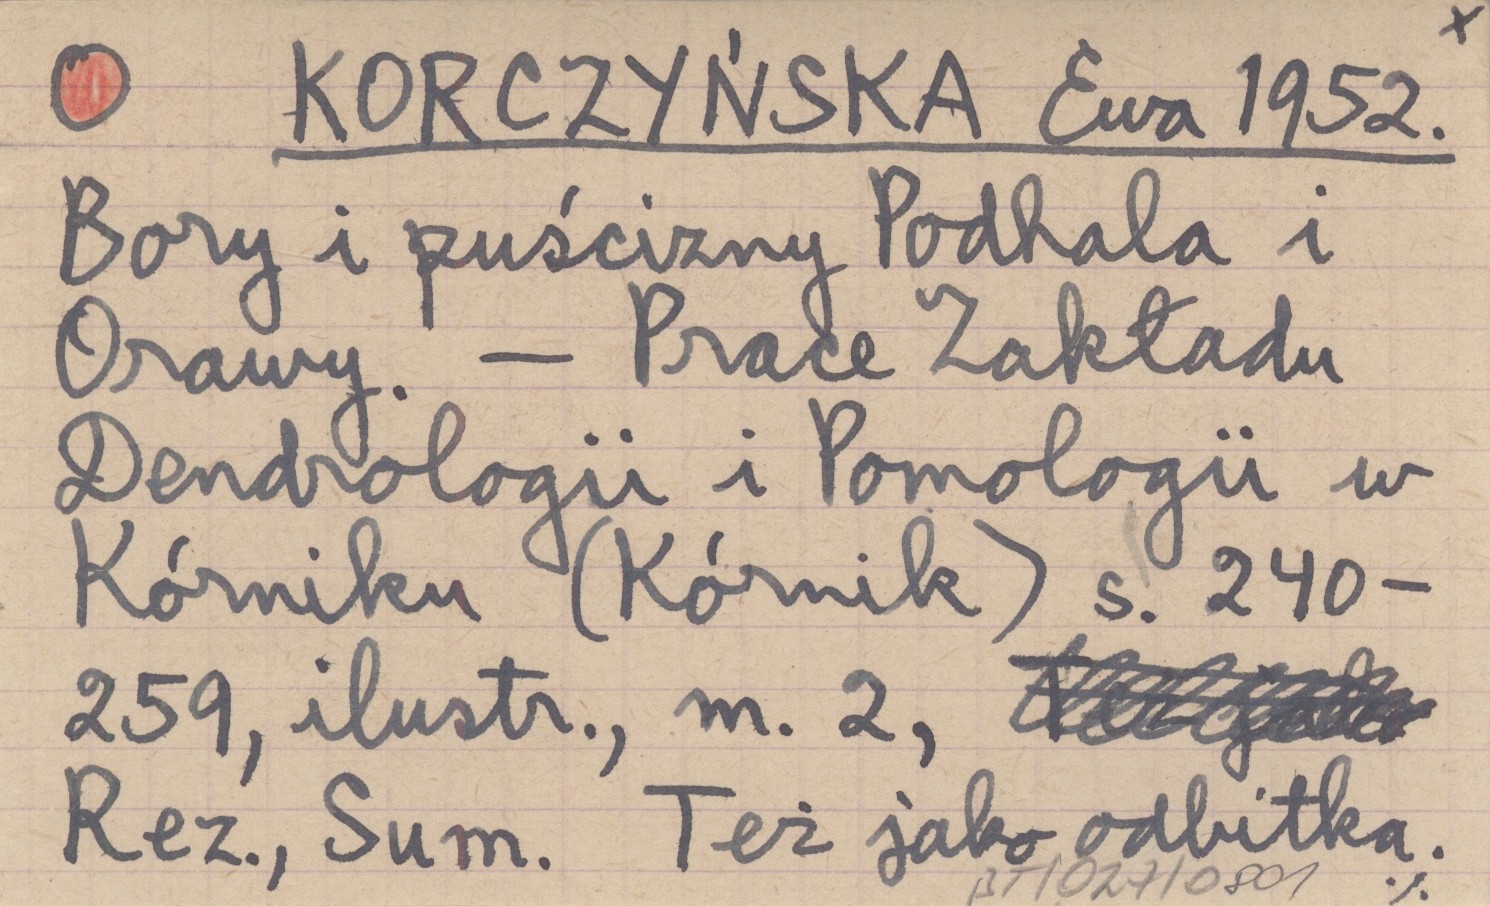 x
KORCZYŃSKA Ewa 1952.
Bory i puścizny Podhala i
Orawy. — Prace Zakładu
Dendrologii i Pomologii w
Kórniku (Kórnik) s. 240-
259, ilustr., m. 2,
Rez., Sum. Też jako odbitka.
BT/027/0801 ./.